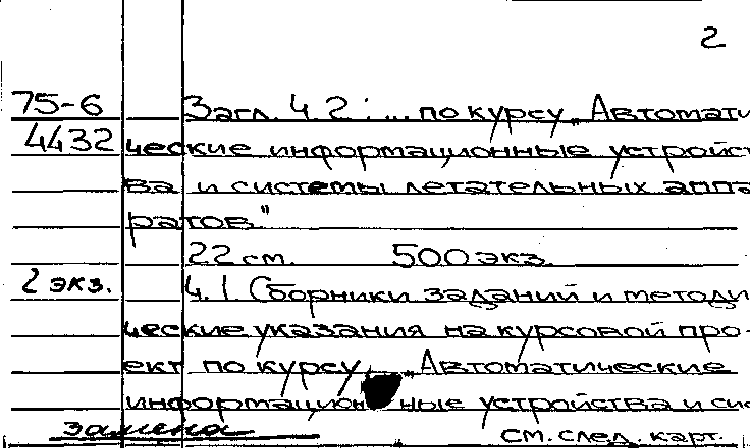 2
75-6 Загл. Ч. 2 : ... по курсу „Автомати
4432 ческие информационные устройст
ва и системы летательных аппа
ратов"
22 см. 500 экз.
2 экз. Ч. 1. Сборники заданий и методи
ческие указания на курсовой про-
ект по курсу „Автоматические
информационные устройства и сис
замена см. след. карт.